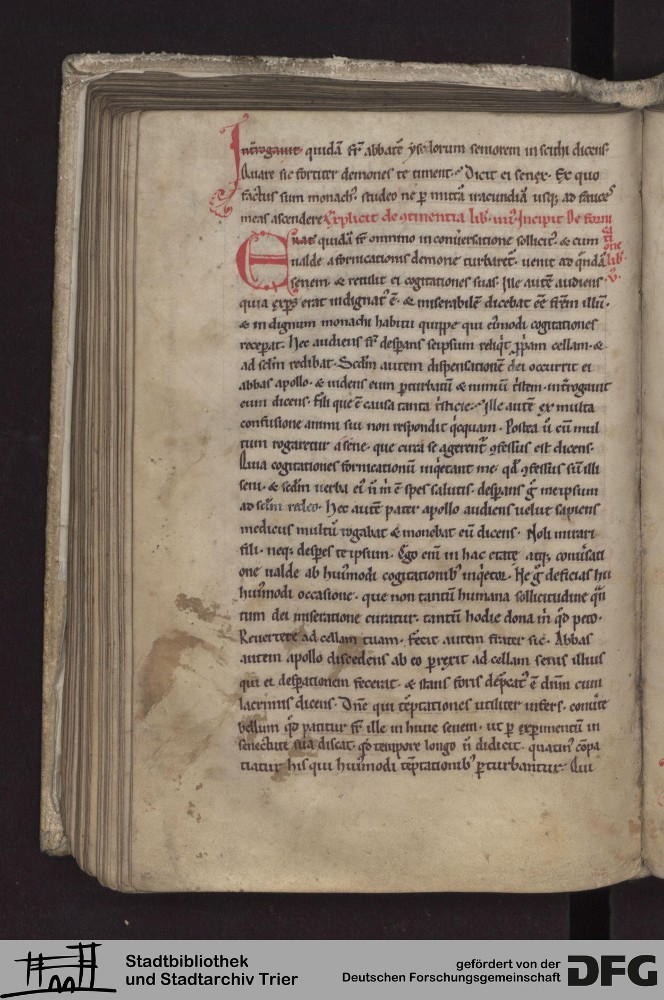 Int̄rogauit quidā fr̄ abbatē yse lorum seniorem in scithi dicens·
Quare sic fortiter demones te timent· Dicit ei senex· Ex quo
factus sum monachꝰ studeo ne ꝑ mitrā iracundiā usqꝫ ad fauces
meas ascendere Explicit de ꝯtinentia lib· iiiiꝰ Incipit De forni
cati
one
lib·
v·
Erat quidā fr̄ omnino in conuersatione sollicitꝰ· & cum
ualde a fornicationis demone turbaretᷣ· uenit ad quendā
senem· & retulit ei cogitationes suas· Ille autē audiens·
quia exꝑs erat indignatꝰ ē· & miserabilē dicebat eē fr̄em illū·
& indignum monachi habitu quippe qui eiꝰmodi cogitationes
reciperat· Hec audiens fr̄ desperans seipsum reliqͥt ꝓpriam cellam· &
ad sclm̄ redibat· Scdm̄ autem dispensationē dei occurrit ei
abbas apollo· & uidens eum ꝑturbatū & nimiū tͥstem· int̄rogauit
eum dicens· Fili que ē causa tanta tͥsticie· Ille autē ex multa
confusione animi sui non respondit qͥcquam· Postea ū eū mul
tum rogaretur a sene· que circa se agerentᷣ ꝯfessus est dicens·
Quia cogitationes fornicationū inqͥetant me· ꝯfessus sū illi
seni· & scdm̄ uerba eiꝰ n̄ m̄ ē spes salutis· desperans gͦ meipsum
ad sclm̄ redeo· Hec autē pater apollo audiens uelut sapiens
medicus multū rogabat & monebat eū dicens· Noli mirari
fili· neqꝫ despes te ipsum· Ego eni in hac etate atqꝫ conuersati
one ualde ab huiꝰmodi cogitationibꝰ inqͥetor· Ne gͦ deficias in
huiꝰmodi occasione· que non tantū humana sollicitudine qͣn
tum dei miseratione curatur· tantū hodie dona m̄ qd̄ peto·
Reuertere ad cellam tuam· Fecit autem frater sic· Abbas
autem apollo discedens ab eo ꝑrexit ad cellam senis illius
qui ei desperationem fecerat· & stans foris deꝑcatꝰ ē dn̄m cum
lacrimis dicens· Dn̄e qui tēptationes utiliter infers· conuͥte
bellum qd̄ patitur fr̄ ille in hunc senem· ut ꝑ exꝑimentū in
senectute sua discat· qd̄ tempore longo n̄ didicit· quatinꝰ cōpa
tiatur his qui huiꝰmodi tēptationibꝰ ꝑturbantur· Qui
Stadtbibliothek
und Stadtarchiv Trier
gefördert von der
Deutschen Forschungsgemeinschaft
DFG